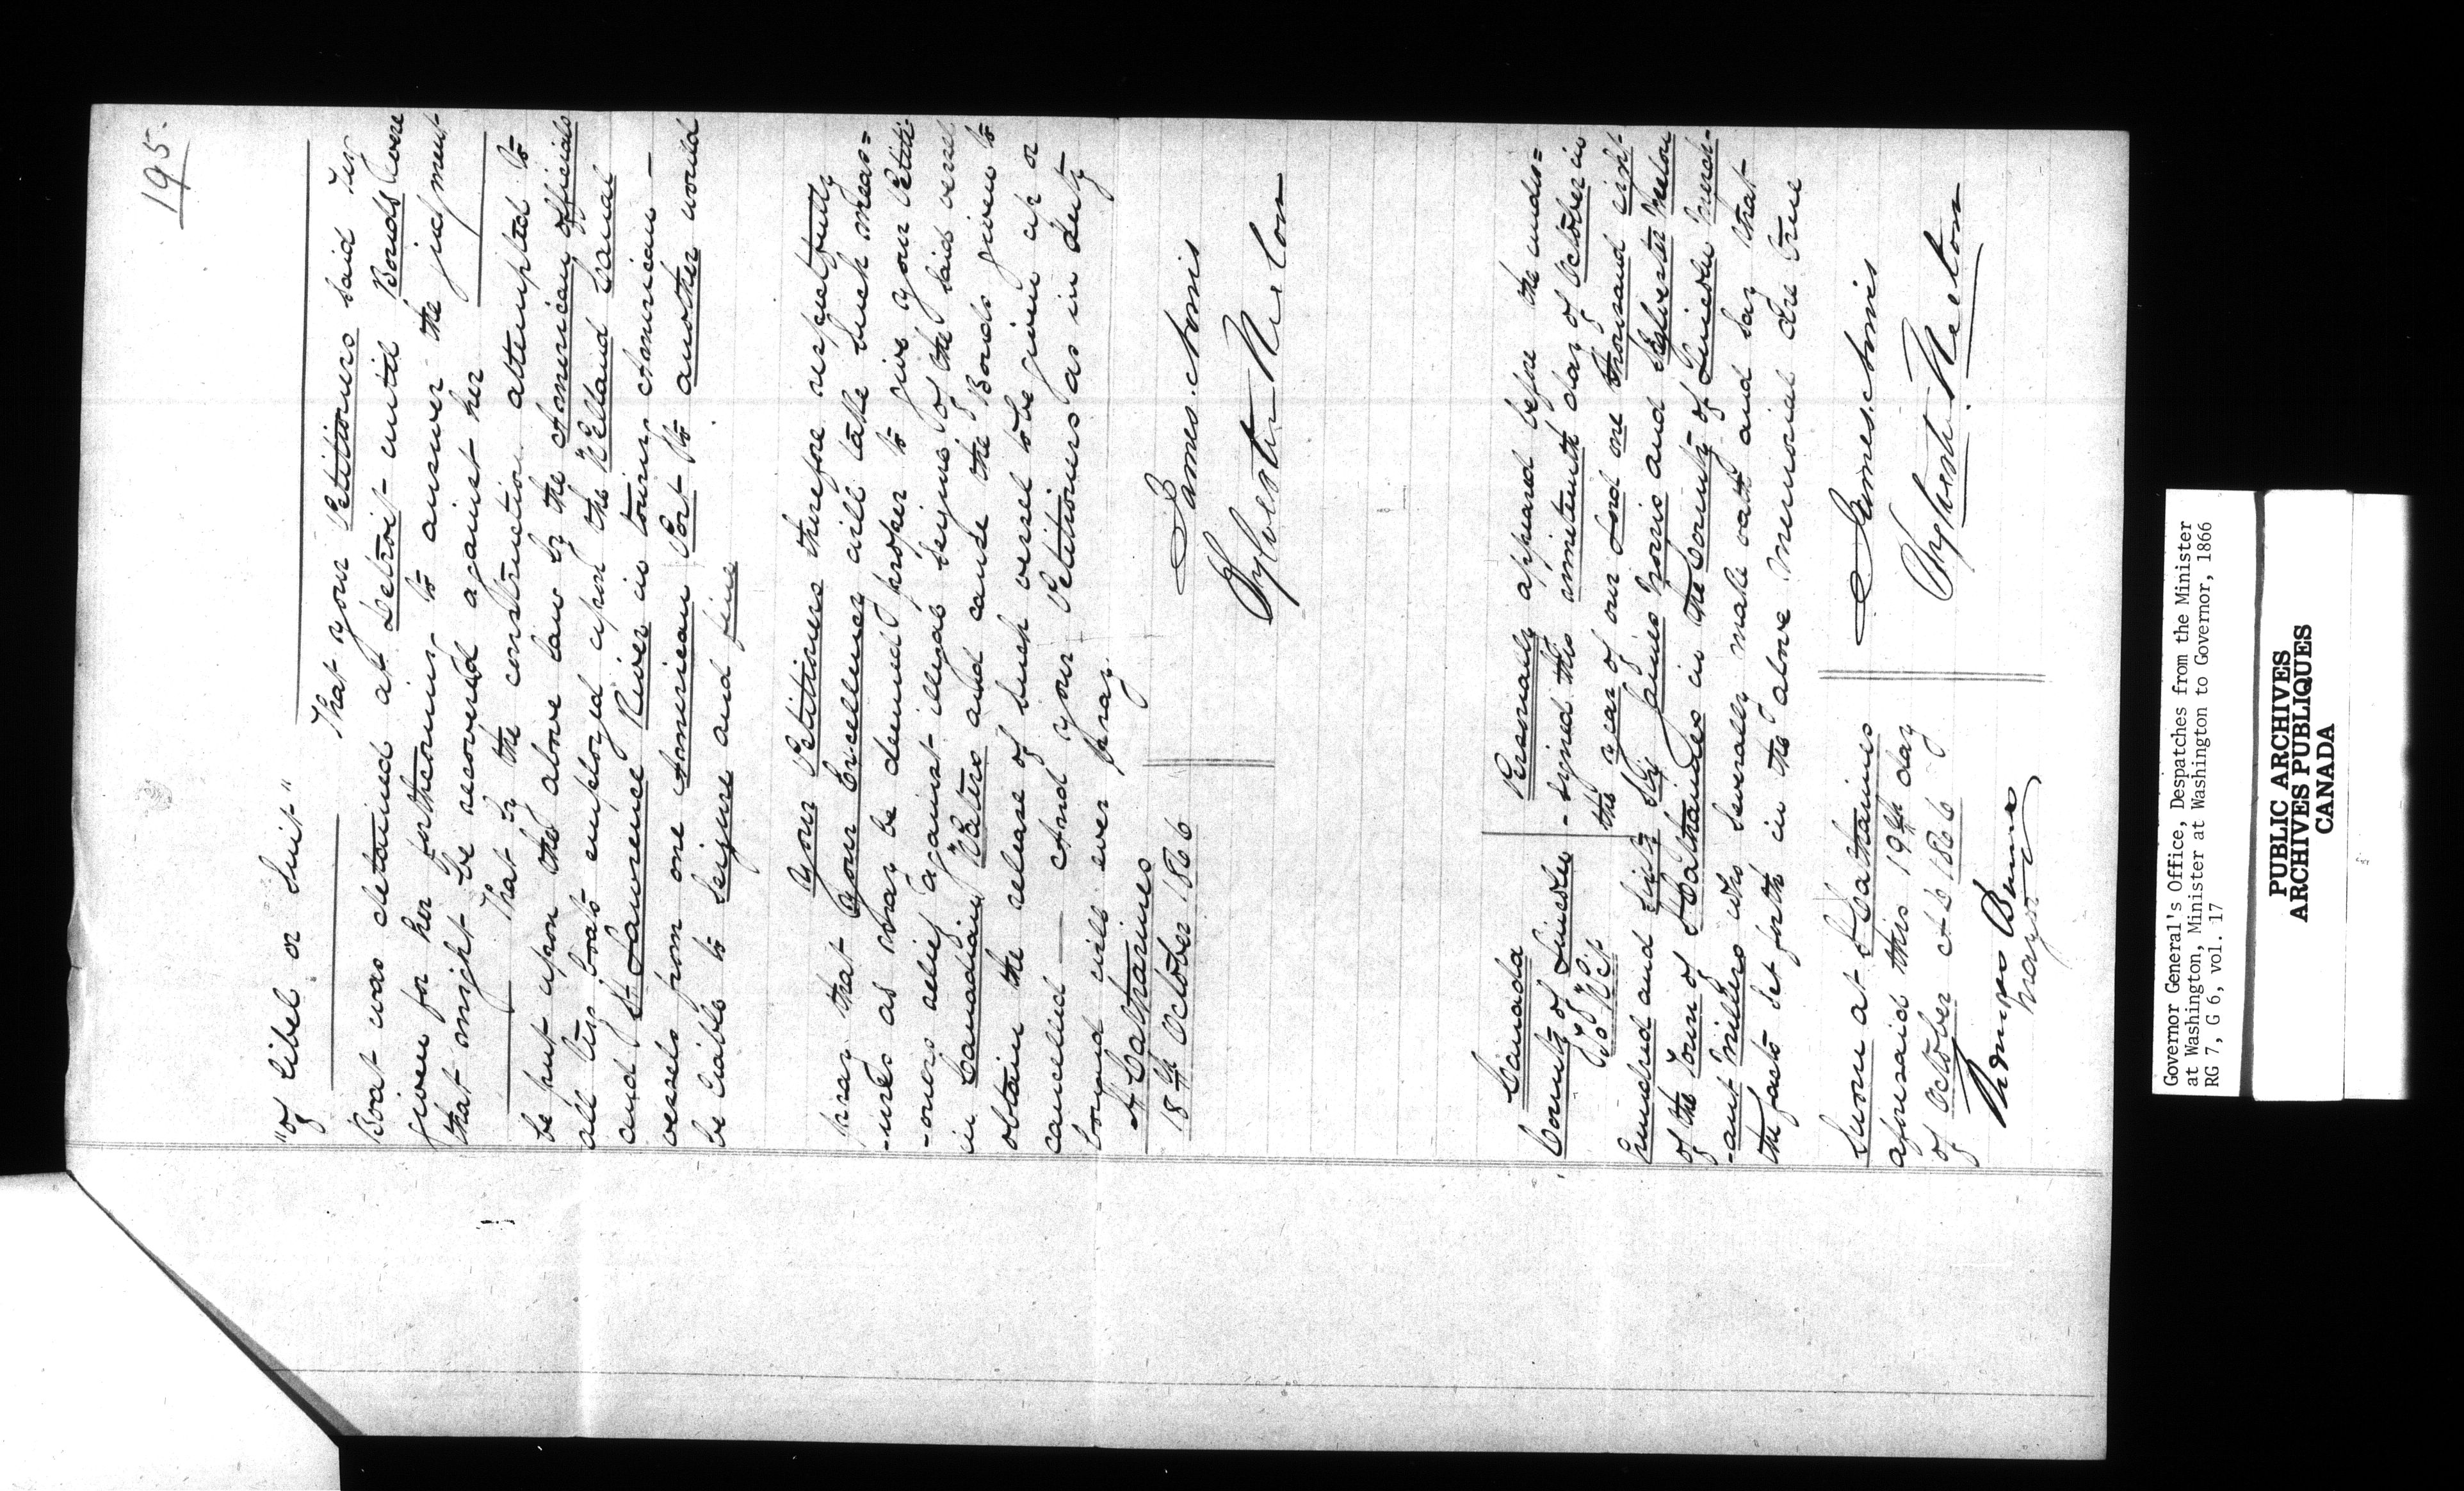 195.
"of libel or Suit"
That your Petitioners said Tug
Boat was detained at Detroit until Bonds were
given for her forthcoming to answer the judgment
that might be recovered against her
That by the construction attempted to
be put upon the above law by the American officials
all tug boats employed upon the Welland Canal
and St Lawrence River in towing American
vessels from one American Port to another would
be liable to seizure and fine
Your Petitioners therefore respectfully
pray that Your Excellency will take such meas=
-ures as may be deemed proper to give your Petiti-
-oners relief against illegal seizure of the said vessel
in Canadian Waters and cause the Bonds given to
obtain the release of such vessel to be given up or
cancelled — And your Petitioners as in duty
bound will ever pray
St Catharines
18th October 1866
James Norris
Sylvester Neelon
Canada
County of Lincoln
To Wit
Personally appeared before the under=
-signed this nineteenth day of October in
the year of our Lord one thousand eight
hundred and sixty six James Norris and Sylvester Neelon
of the Town of St Catharines in the County of Lincoln Merch-
-ant Millers who severally make oath and say that
the facts set forth in the above Memorial are true
Sworn at St Catharines
aforesaid this 19th day
of October AD 1866
James Norris
Sylvester Neelon
Mayor
Governor General's Office, Despatches from the Minister
at Washington, Minister at Washington to Governor, 1866
RG 7, G 6, vol. 17
PUBLIC ARCHIVES
ARCHIVES PUBLIQUES
CANADA